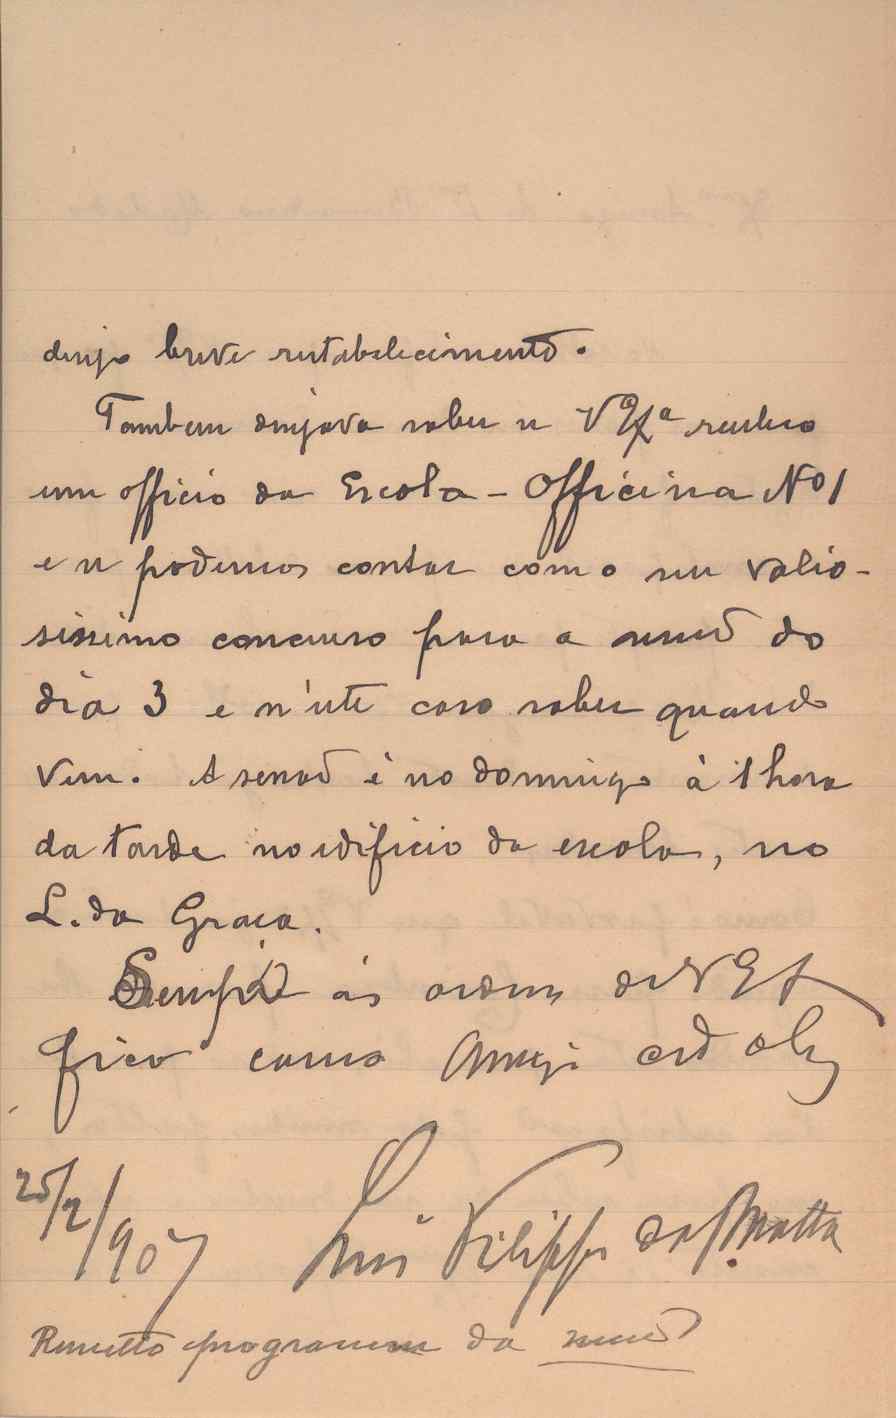 desejo breve restabelecimento.
Tambem desejava saber se V Exª recebeu
um officio da Escola - Officina Nº 1
e se podemos contar com o seu valio-
sissimo concurso para a sessão do
dia 3 e n'este caso saber quando
vem. A sessão é no domingo à 1 hora
da tarde no edificio da escola, no
L. da Graça.
Sempre ás ordens de V Ex
fico como Amigo
25/2/907 Luis Filippe da Matta
Remetto programma da sessão